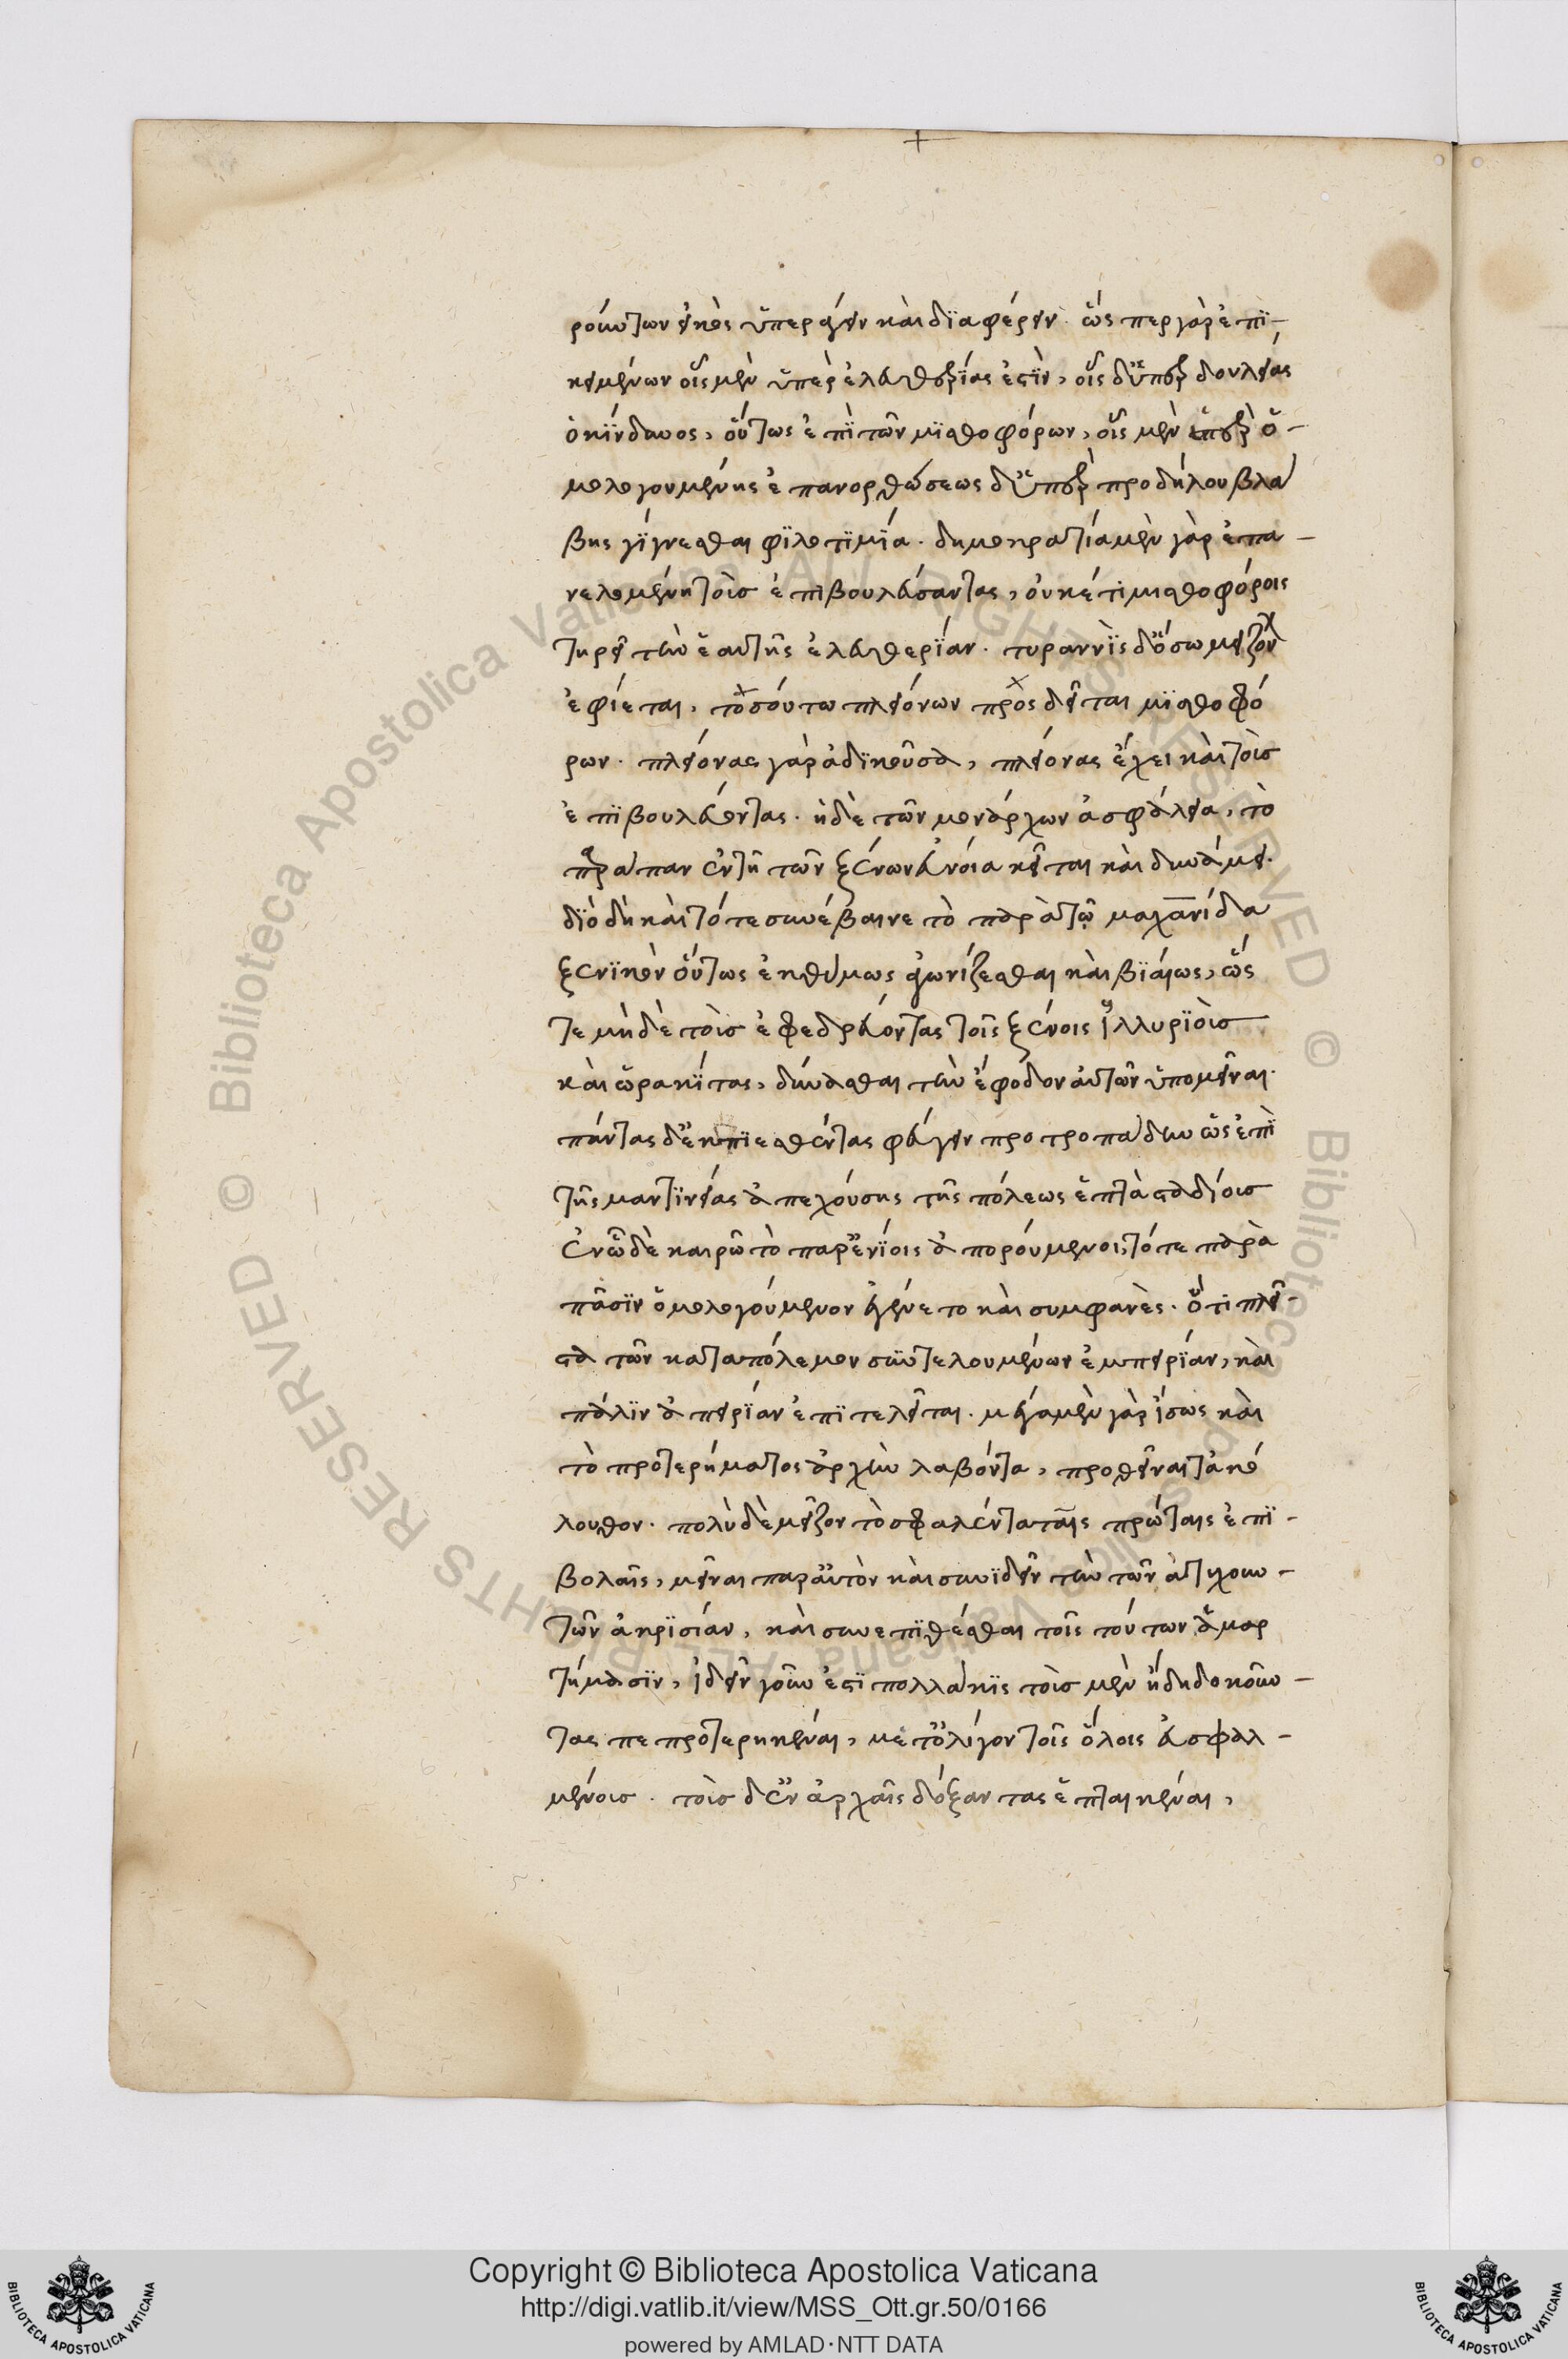 ρούντων εἰκὸς ὑπεράγειν καὶ διαφέρειν. ὥς περ γὰρ ἐπι-
κειμένων οἷς μὲν ὑπὲρ ἐλευθερίας ἐστὶν, οἷς δ' ὑπὲρ δουλείας
ὁ κίνδυνος, οὕτως ἐπὶ τῶν μισθοφόρων, οἷς μὲν ὑπὲρ ὁ-
μολογουμένης ἐπανορθώσεως δ' ὑπὲρ προδήλου βλά
βης γίγνεσθαι φιλοτιμία. δημοκρατία μὲν γὰρ ἐπα-
νελομένη τοὺς ἐπιβουλεύσαντας, οὐκέτι μισθοφόροις
τηρεῖ τὴν ἑαυτῆς ἐλευθερίαν. τυραννὶς δ' ὅσω μειζόν
ἐφίεται, τοσούτω πλειόνων προσδεῖται μισθοφό
ρων. πλείονας γὰρ ἀδικοῦσα, πλείονας ἔχει καὶ τοὺς
ἐπιβουλεύοντας. ἡ δὲ τῶν μονάρχων ἀσφάλεια, τὸ
παράπαν ἐν τῇ τῶν ξένων εὐνοία κεῖται καὶ δυνάμει.
διὸ δὴ καὶ τότε συνέβαινε τὸ παρὰ τῷ μαχανίδα
ξενικὸν οὕτως ἐκθύμως ἀγωνίζεσθαι καὶ βιαίως, ὥς
τε μὴ δὲ τοὺς ἐφεδρεύοντας τοῖς ξένοις ἰλλυριοὺς
καὶ ὡρακίτας, δύνασθαι τὴν ἔφοδον αὐτῶν ὑπομεῖναι.
πάντας δ' ἐκπιεσθέντας φεύγειν προτροπάδην ὡς ἐπὶ
τῆς μαντινείας ἀπεχούσης τῆς πόλεως ἑπτὰ σταδίους
ἐν ᾧ δὲ καιρῷ τὸ παρ' ἐνίοις ἀπορούμενοι, τότε παρὰ
πᾶσιν ὁμολογούμενον ἐγένετο καὶ συμφανὲς. ὅτι πλεῖ-
στα τῶν κατὰ πόλεμον συντελουμένων ἐμπειρίαν, καὶ
πάλιν ἀπειρίαν ἐπιτελεῖται. μέγα μὲν γὰρ ἴσως καὶ
τὸ προτερήματος ἀρχὴν λαβόντα, προσθεῖναι τἀκό
λουθον. πολὺ δὲ μεῖζον τὸ σφαλέντα ταῖς πρώταις ἐπι-
βολαῖς, μεῖναι παρ' αὑτὸν καὶ συνιδεῖν τὴν τῶν εὐτυχουν-
των ἀκρισίαν, καὶ συνεπιθέσθαι τοῖς τούτων ἁμαρ
τήμασιν, ἰδεῖν γοῦν ἐστι πολλάκις τοὺς μὲν ἤδη δοκοῦν-
τας πεπροτερηκέναι, μετ' ὀλίγον τοῖς ὅλοις ἐσφαλ-
μένους. τοὺς δ' ἐν ἀρχαῖς δόξαντας ἐπταικέναι,
Copyright © Biblioteca Apostolica Vaticana
http://digi.vatlib.it/view/MSS_Ott.gr.50/0166
powered by AMLAD·NTT DATA
BIBLIOTECA APOSTOLICA VATICANA
BIBLIOTECA APOSTOLICA VATICANA
© Biblioteca Apostolica Vaticana ALL RIGHTS RESERVED
© Biblioteca Apostolica Vaticana ALL RIGHTS RESERVED